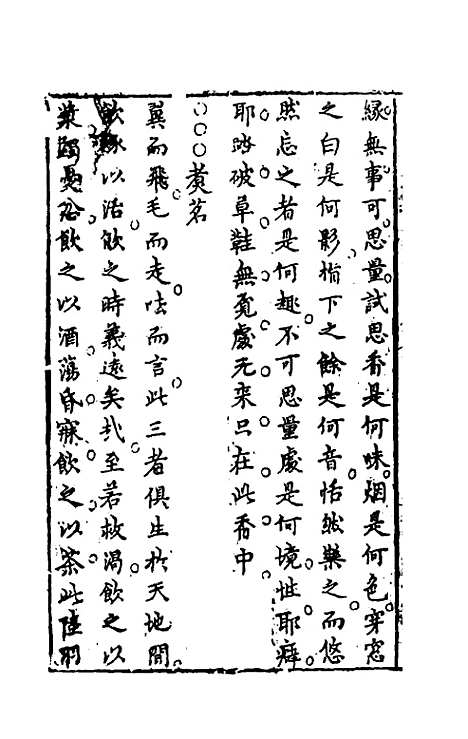 緣無事可思量試思香是何味烟是何色穿窓
之白是何影指下之餘是何音恬然樂之而悠
然忘之者是何趣不可思量處是何境性耶癖
耶踏破草鞋無覔處元來只在此香中
○○○煑茗
翼而飛毛而走呿而言此三者俱生於天地間
飲啄以活飲之時義遠矣哉至若救渴飲之以
漿蠲憂忿飲之以酒蕩昏寐飲之以茶此陸羽